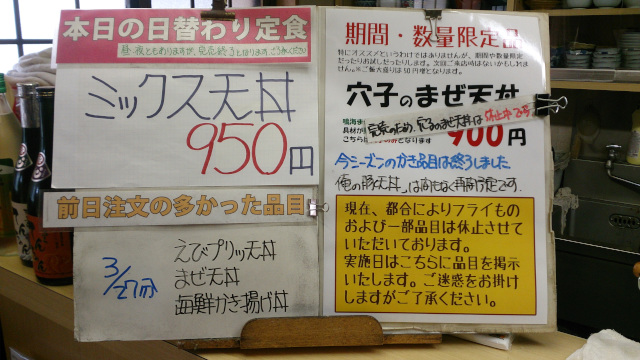 本日の日替わり定食
ミックス天丼
950円
前日注文の多かった品目
3/27分
えびプリッ天丼
まぜ天丼
海鮮かき揚げ丼
期間・数量限定品
特にオススメというわけではありませんが、期間や数量限定
だったりお試しだったりします。次回ご来店時はないかもしれま
せん。※ご飯大盛りは50円増となります。
穴子のまぜ天丼
完売のため、穴子のまぜ天丼は休止中です
900円
今シーズンのかき品目は終了しました
俺の豚天丼、は間もなく再開予定です.
現在、都合によりフライもの
および一部品目は休止させて
いただいております。
実施日はこちらに品目を掲示
いたします。ご迷惑をお掛け
しますがご了承ください。